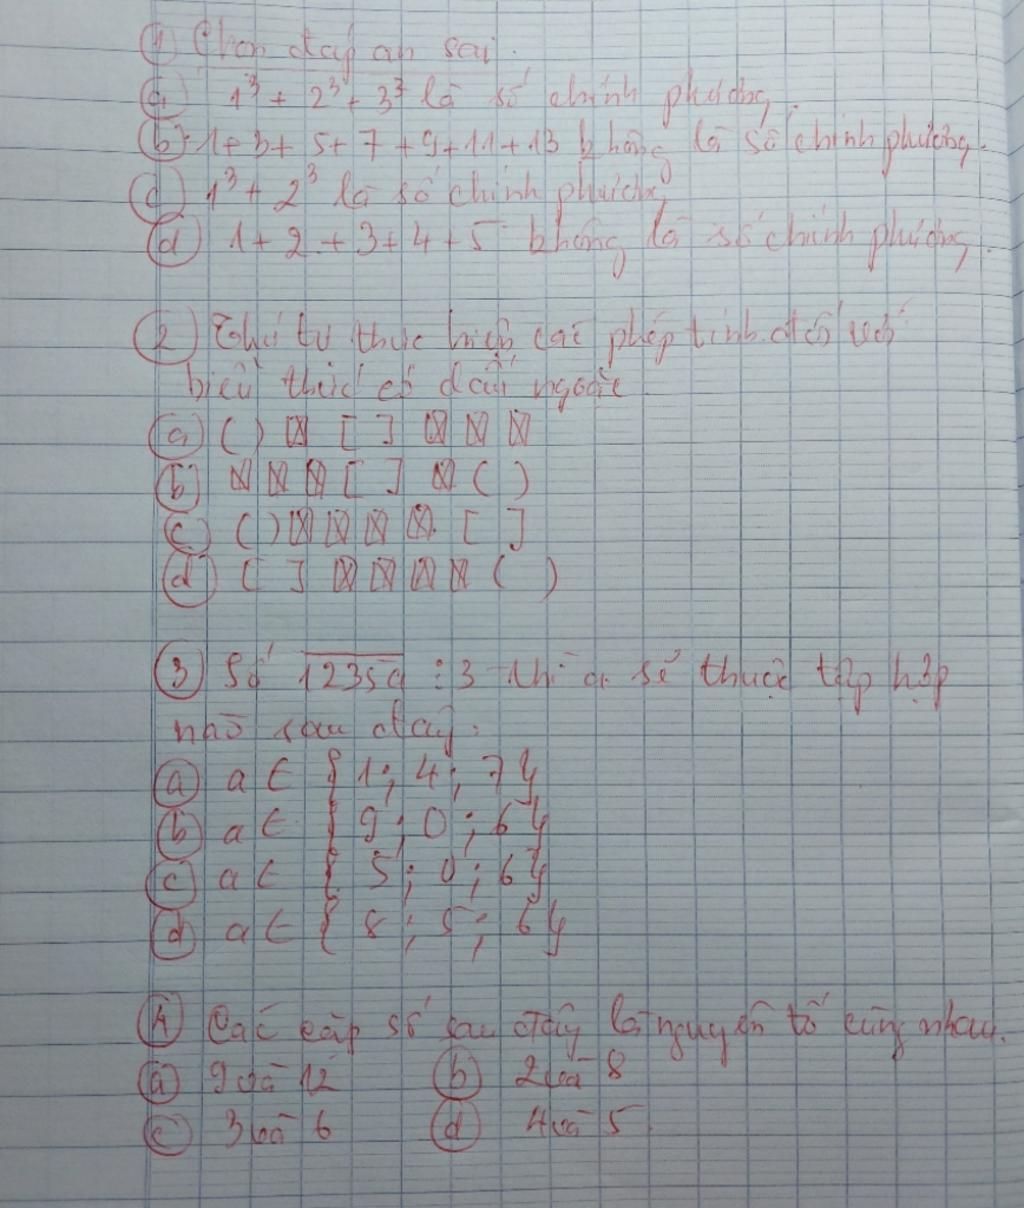 ① Chọn đáp án sai.
ⓐ 1³ + 2³ + 3³ là số chính phương.
ⓑ 1 + 3 + 5 + 7 + 9 + 11 + 13 không là số chính phương.
ⓒ 1³ + 2³ là số chính phương
ⓓ 1 + 2 + 3 + 4 + 5 không là số chính phương.
② Thứ tự thực hiện các phép tính đối với
biểu thức có dấu ngoặc
ⓐ ( ) ☒ [ ] ☒ ☒ ☒
ⓑ ☒ ☒ ☒ [ ] ☒ ( )
ⓒ ( ) ☒ ☒ ☒ ☒ [ ]
ⓓ [ ] ☒ ☒ ☒ ☒ ( )
③ Số 1235a ⋮ 3 thì a sẽ thuộc tập hợp
nào sau đây:
ⓐ a ∈ {1; 4; 7}
ⓑ a ∈ {9; 0; 6}
ⓒ a ∈ {5; 0; 6}
ⓓ a ∈ {8; 5; 6}
④ Các cặp số sau đây là nguyên tố cùng nhau.
ⓐ 9 và 12 ⓑ 2 và 8
ⓒ 3 và 6 ⓓ 4 và 5